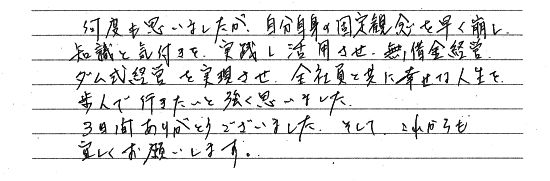 何度も思いましたが、自分自身の固定観念を早く崩し、
知識と気付きを、実践し活用させ、無借金経営、
ダム式経営を実現させ、全社員と共に幸せな人生を、
歩んで行きたいと強く思いました。
3日間ありがとうございました。そして、これからも
宜しくお願いします。